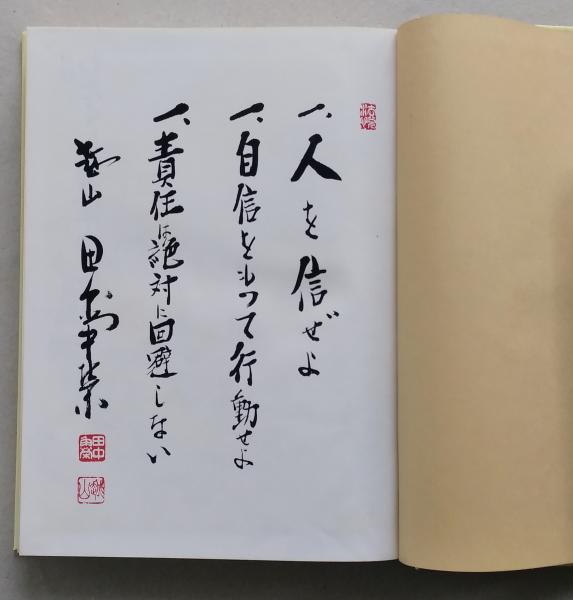 一、人を信ぜよ
一、自信をもって行動せよ
一、責任は絶対に回避しない
越山 田中角榮
田中角榮
越山